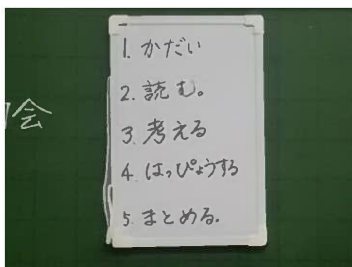 会
1. かだい
2. 読む。
3. 考える
4. はっぴょうする
5. まとめる.